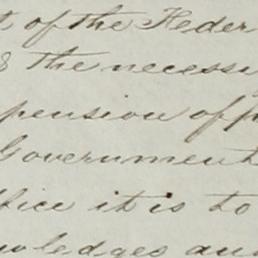 t of the Feder
& the necessi
pension off
Government
fice it is to
wledges and